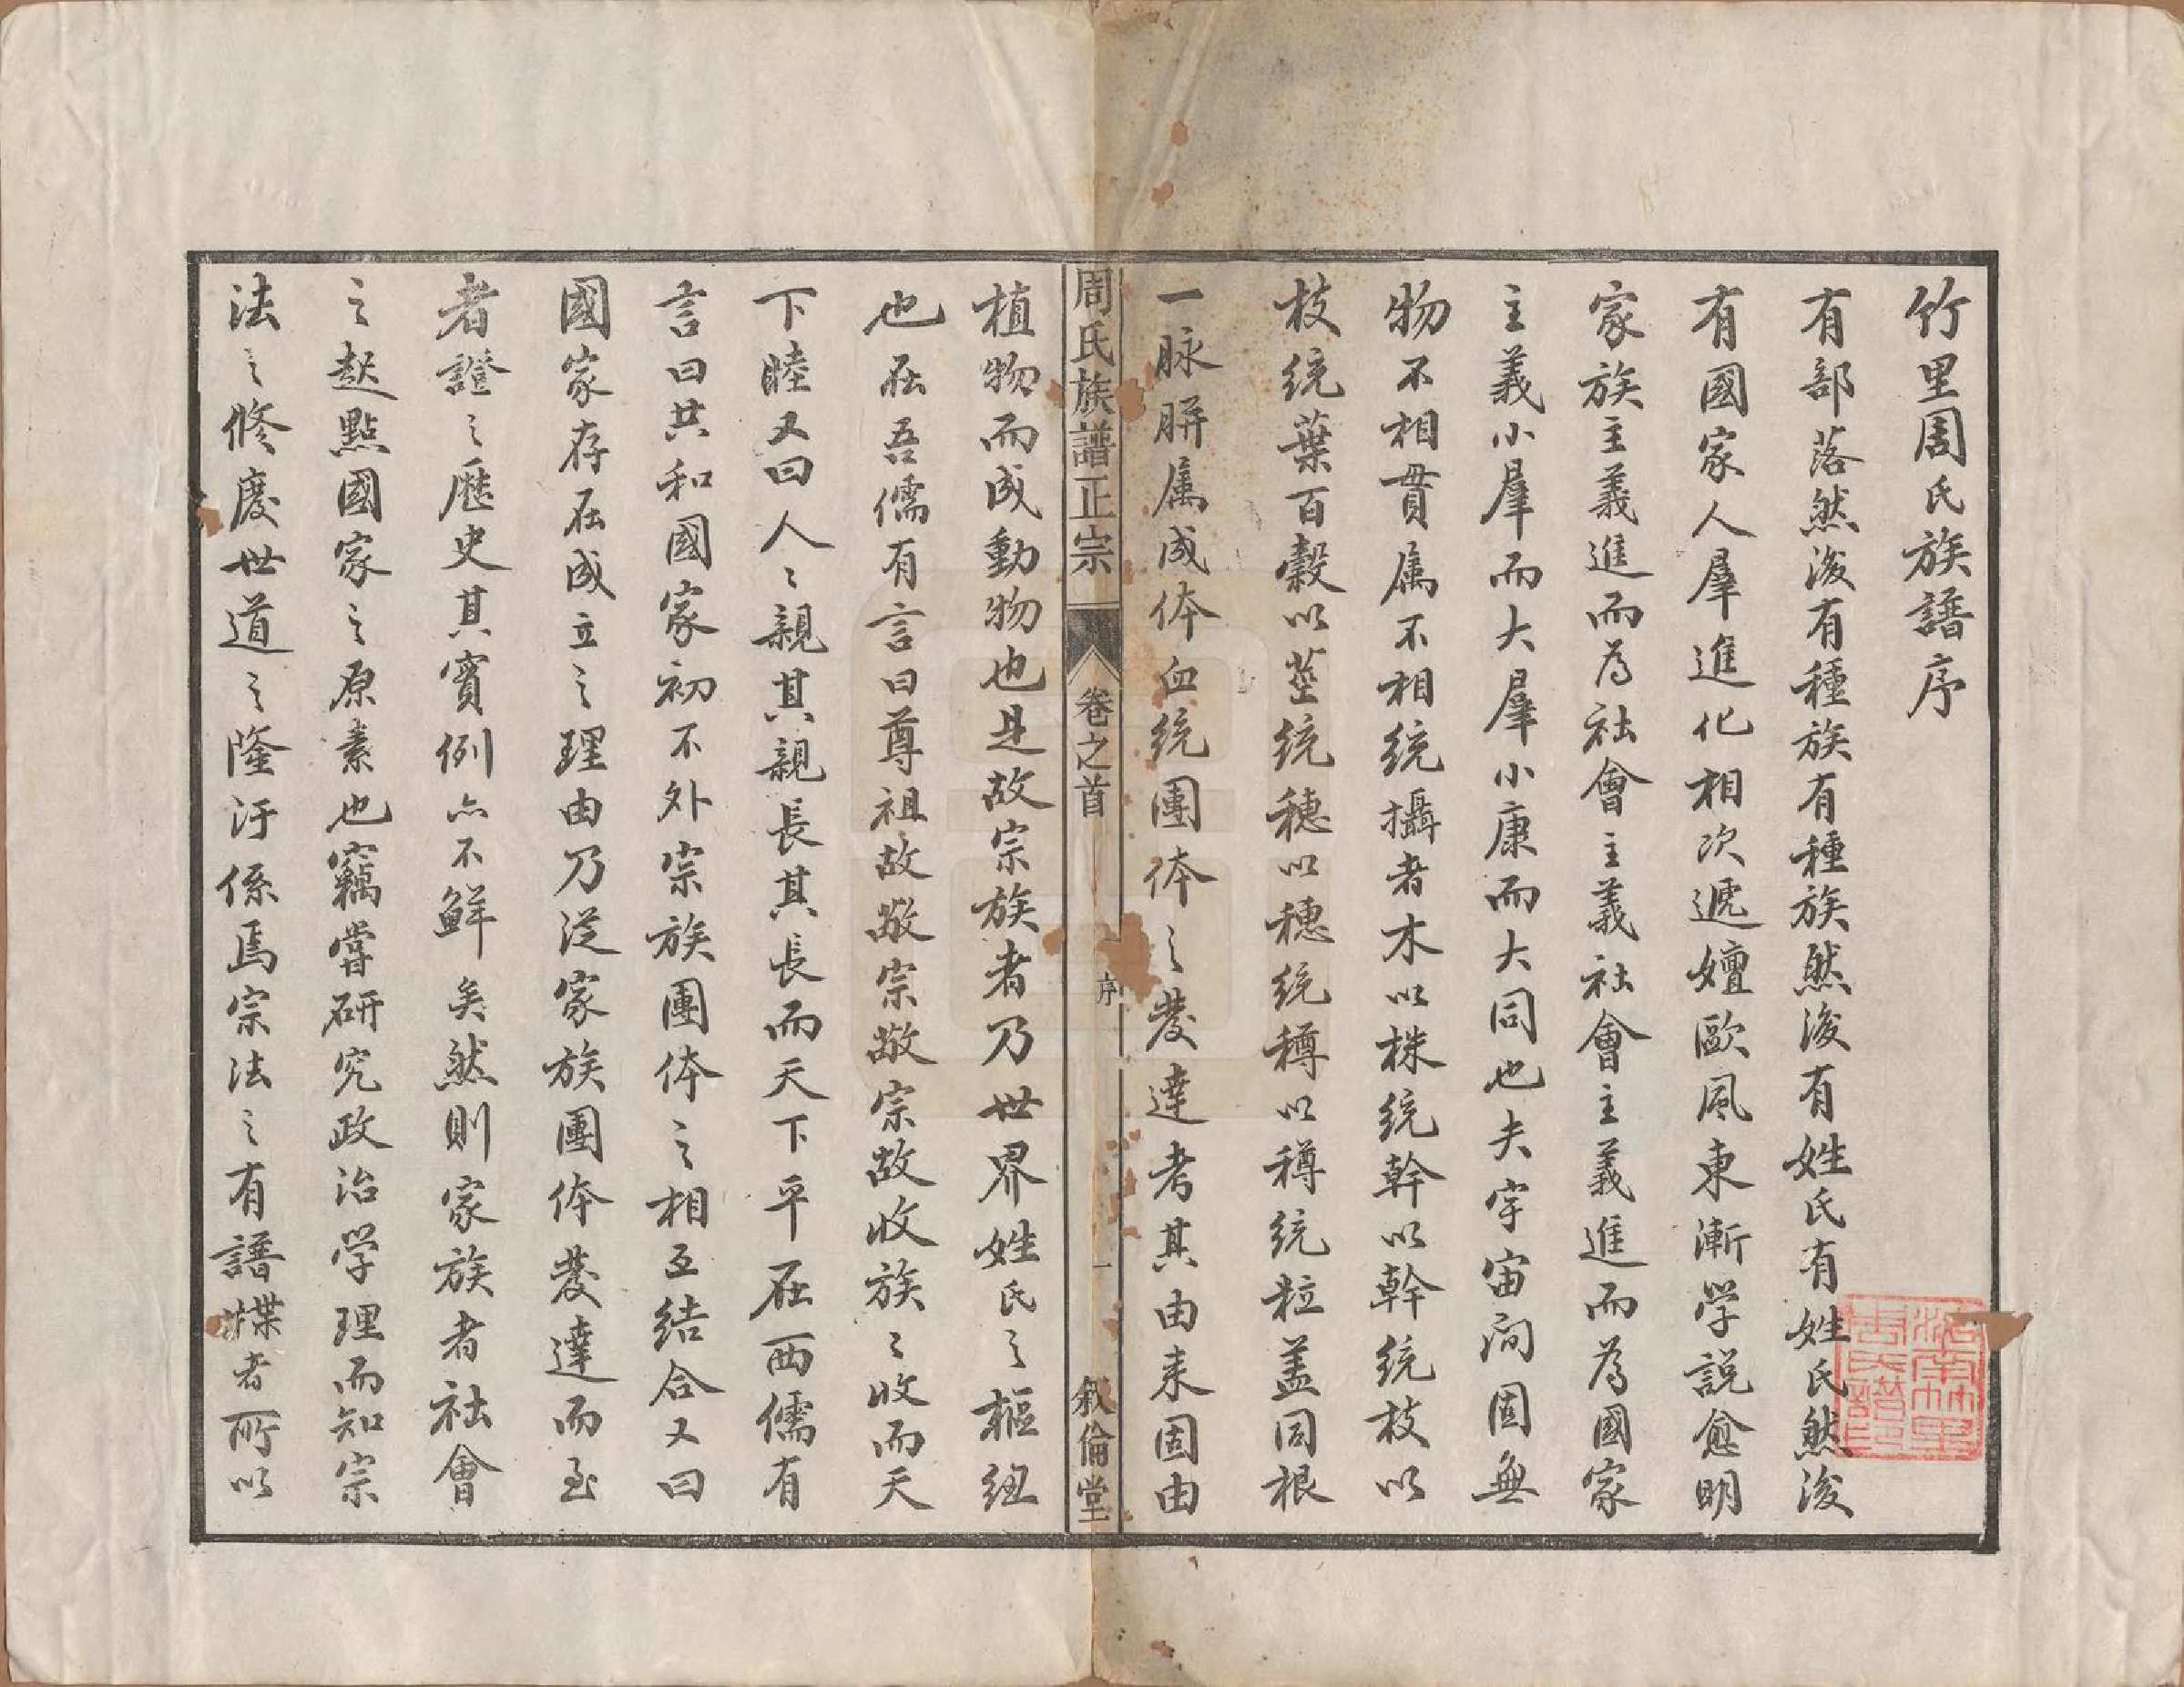 竹里周氏族譜序
有部落然後有種族有種族然後有姓氏有姓氏然後
有國家人羣進化相次遞嬗歐風東漸学説愈明
家族主義進而為社會主義社會主義進而為國家
主義小羣而大羣小康而大同也夫宇宙间固無
物不相貫属不相統攝者木以株統幹以幹統枝以
枝統葉百穀以莖統穗以穗統稃以稃統粒盖同根
一脉胼属成体血统團体之發達考其由来固由
周氏族譜正宗
卷之首
序
一
叙倫堂
植物而成動物也是故宗族者乃世界姓氏之樞紐
也在吾儒有言曰尊祖故敬宗敬宗故收族〻收而天
下睦又曰人〻親其親長其長而天下平在西儒有
言曰共和國家初不外宗族團体之相互结合又曰
國家存在成立之理由乃從家族團体發達而至
者證之歷史其實例亦不鮮矣然則家族者社會
之起點國家之原素也竊嘗研究政治学理而知宗
法之修廢世道之隆汙係焉宗法之有譜牒者所以